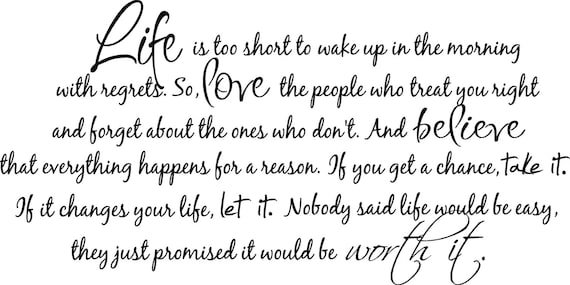 Life is too short to wake up in the morning
with regrets. So, love the people who treat you right
and forget about the ones who don't. And believe
that everything happens for a reason. If you get a chance, take it.
If it changes your life, let it. Nobody said life would be easy,
they just promised it would be worth it.